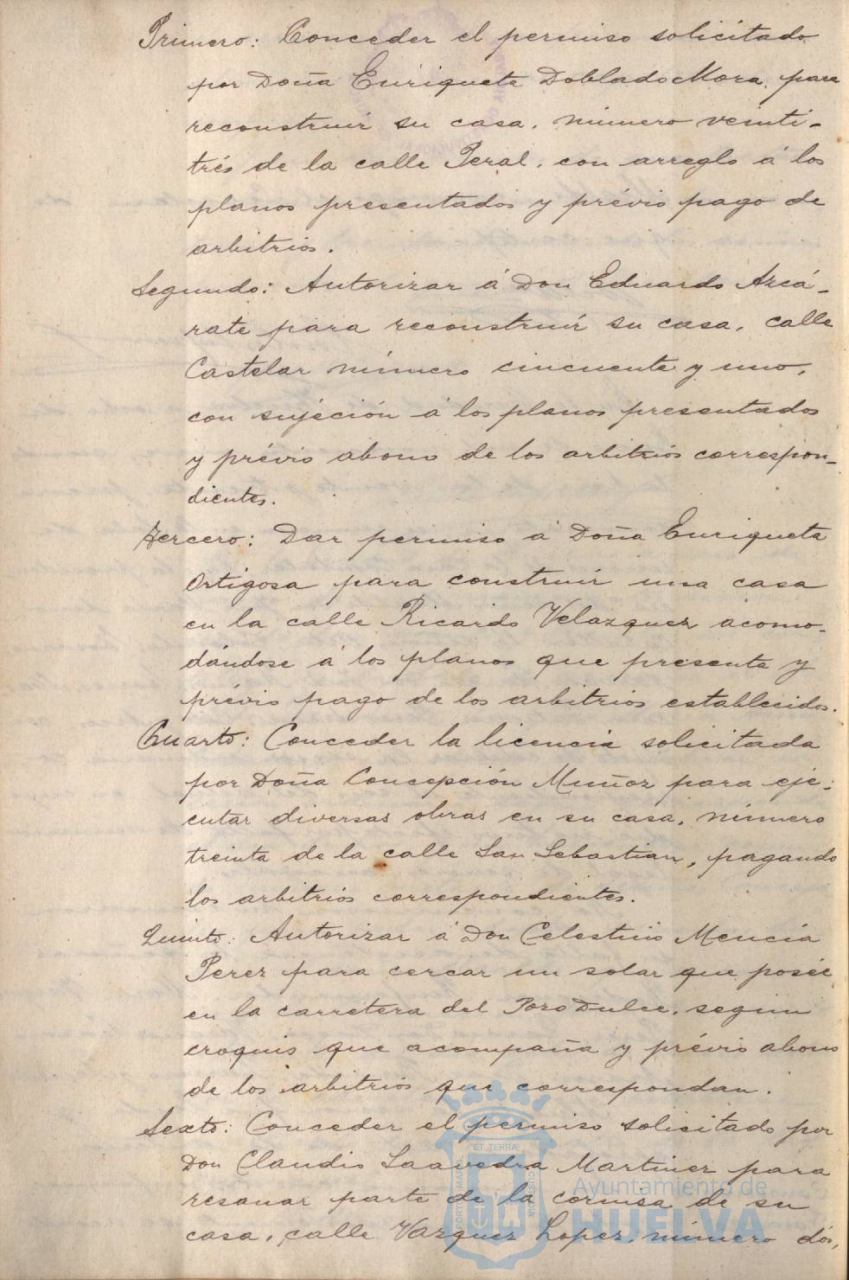 Primero: Conceder el permiso solicitado
por Doña Enriqueta Doblado Mora, para
reconstruir su casa, número veinti-
trés de la calle Peral, con arreglo á los
planos presentados y prévio pago de
arbitrios.
Segundo: Autorizar á Don Eduardo Azcá-
rate para reconstruir su casa, calle
Castelar número cincuente y uno,
con sujéción á los planos presentados
y prévio abono de los arbitrios correspon-
dientes.
Tercero: Dar permiso á Doña Enriqueta
Ortigosa para construir una casa
en la calle Ricardo Velazquez acomo-
dándose á los planos que presenta y
prévio pago de los arbitrios establecidos.
Cuarto: Conceder la licencia solicitada
por Doña Concepción Muñoz para eje-
cutar diversas obras en su casa, número
treinta de la calle San Sebastian, pagando
los arbitrios correspondientes.
Quinto: Autorizar á Don Celestino Mencia
Perez para cercar un solar que poseé
en la carretera del Pozo Dulce, segun
croquis que acompaña y prévio abono
de los arbitrios que correspondan.
Sexto: Conceder el permiso solicitado por
Don Claudio Saavedra Martinez para
resanar parte de la cornisa de su
casa, calle Vazquez Lopez, número dós,
Ayuntamiento de
HUELVA